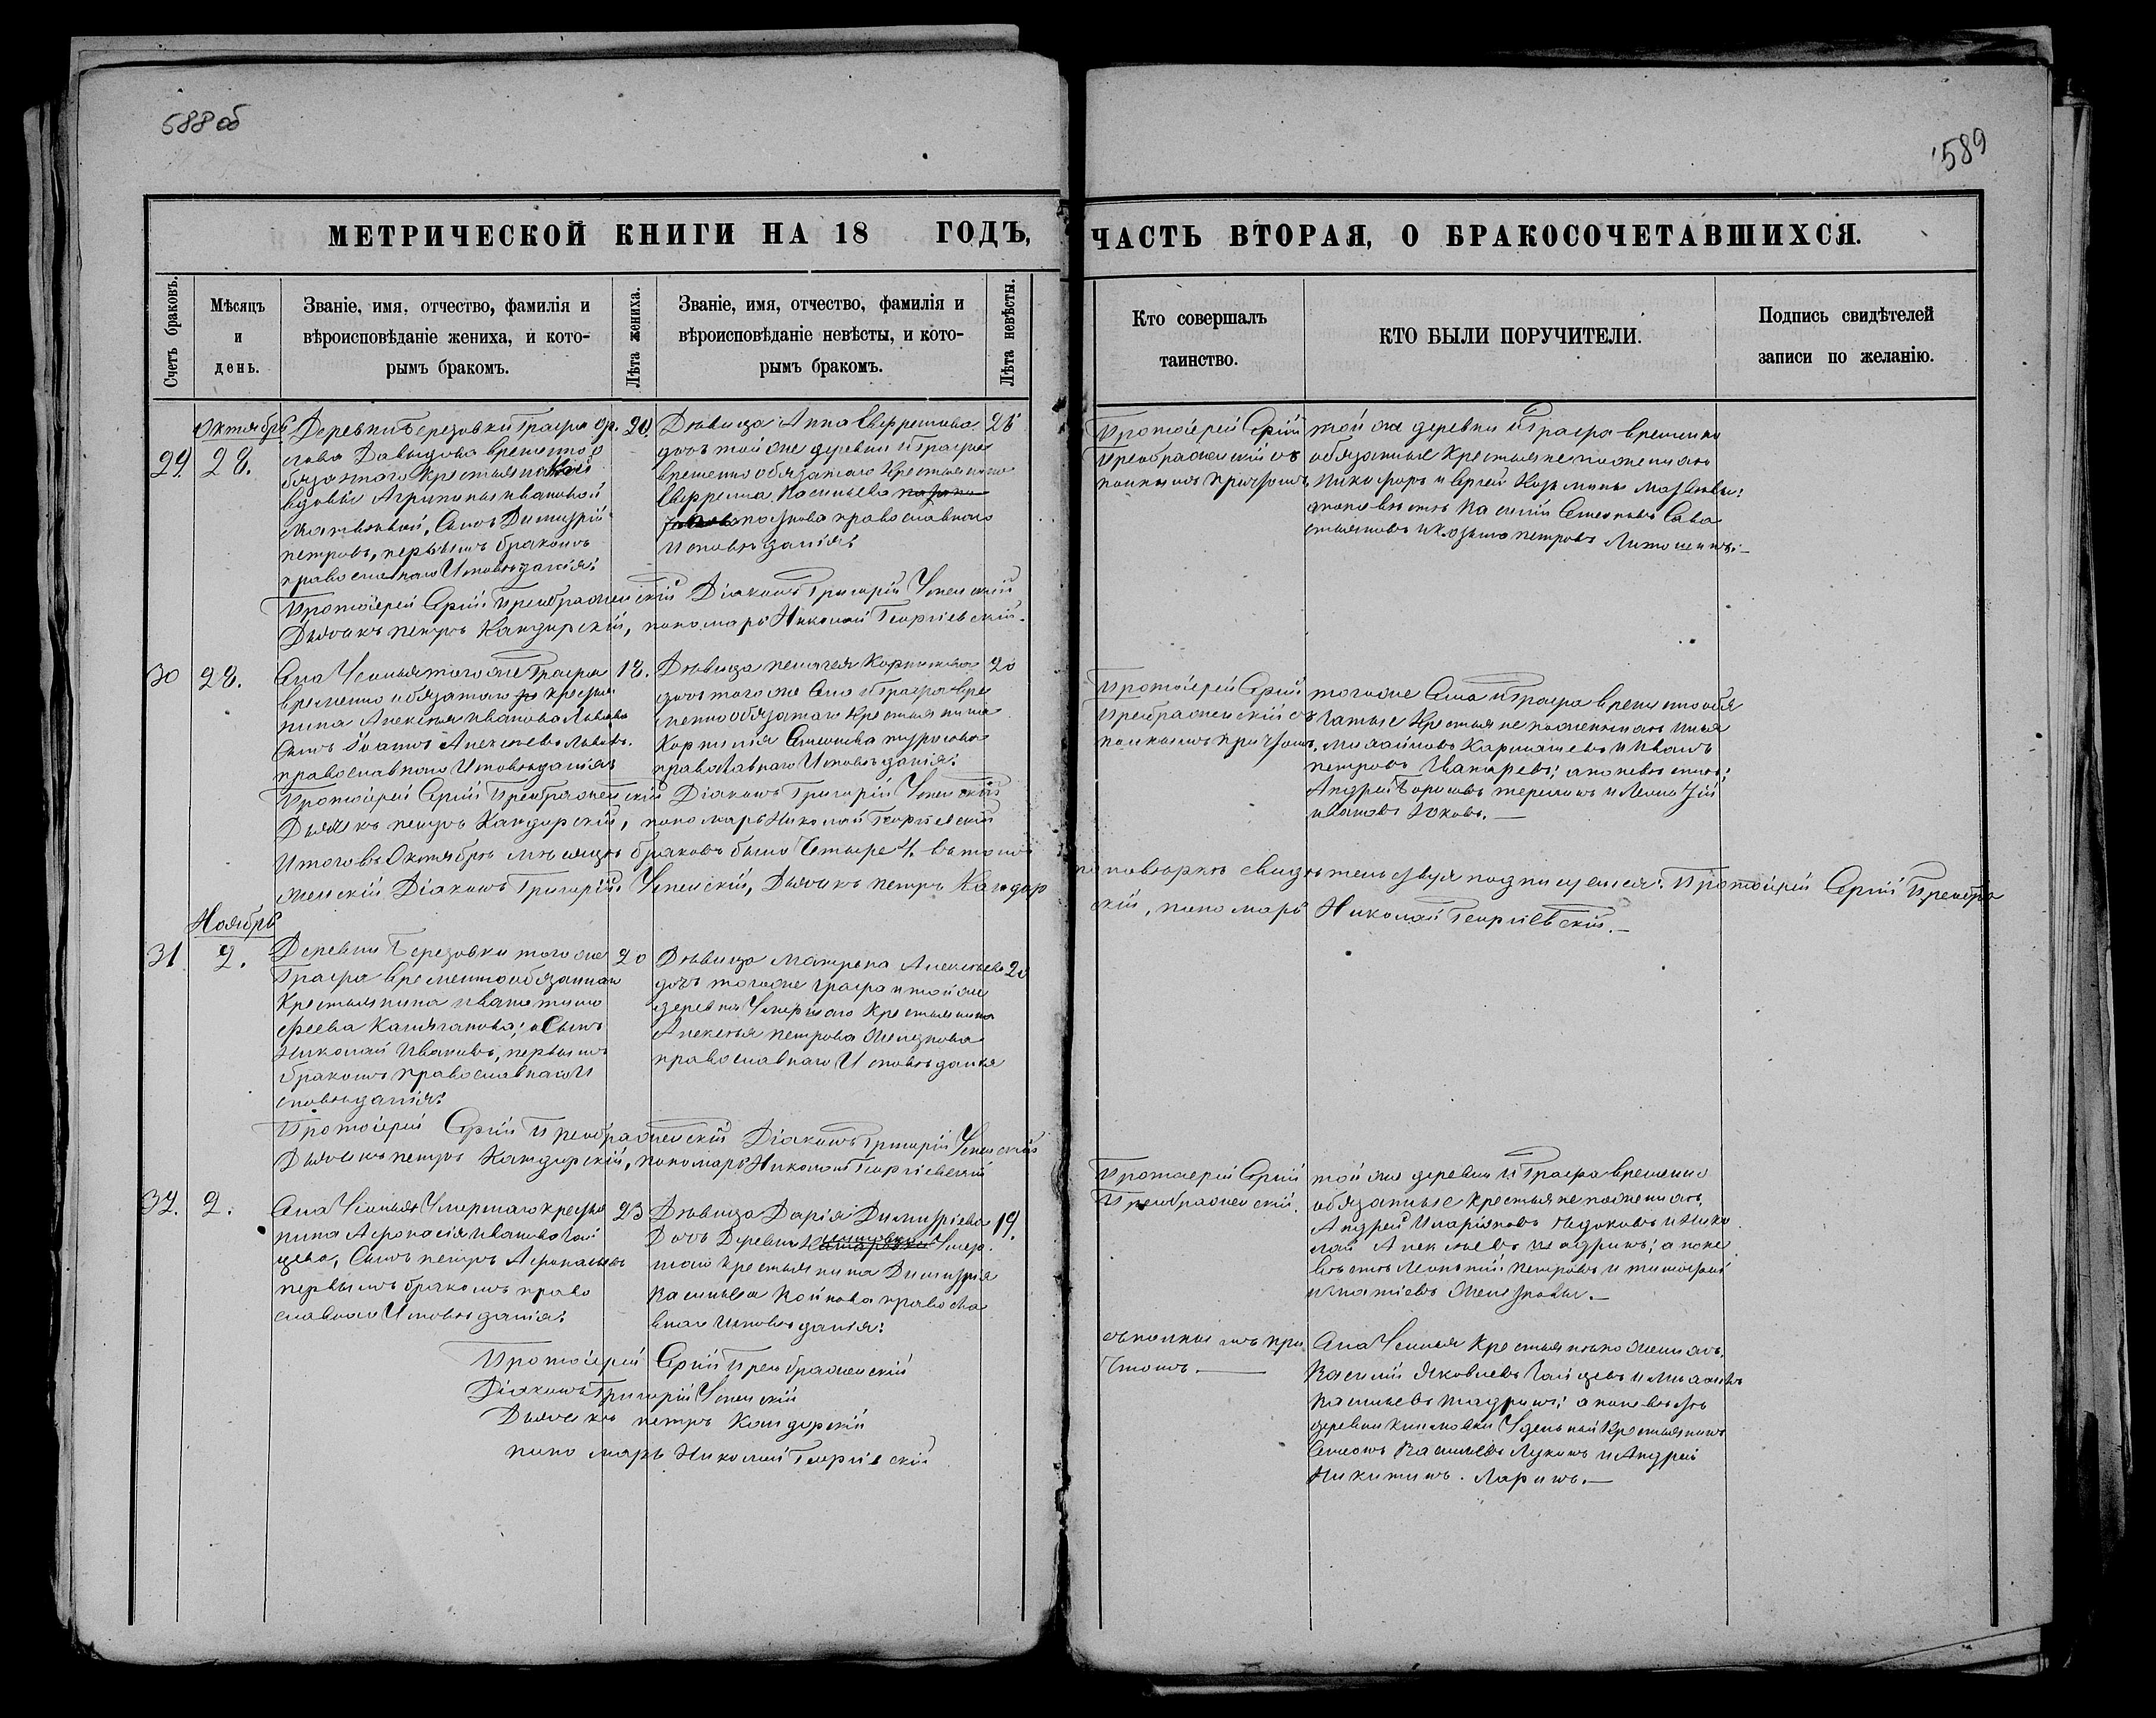 588 об
589
МЕТРИЧЕСКОЙ КНИГИ НА 18 ГОДЪ,
ЧАСТЬ ВТОРАЯ, О БРАКОСОЧЕТАВШИХСЯ.
Счетъ браковъ.
Мѣсяцъ
и
день.
Званіе, имя, отчество, фамилія и
вѣроисповѣданіе жениха, и кото-
рымъ бракомъ.
Лѣта жениха.
Званіе, имя, отчество, фамилія и
вѣроисповѣданіе невѣсты, и кото-
рымъ бракомъ.
Лѣта невѣсты.
Кто совершалъ
таинство.
КТО БЫЛИ ПОРУЧИТЕЛИ.
Подпись свидѣтелей
записи по желанію.
Октябрь
29.
28.
Деревни Березовки Графа Ор.
лова Давыдова временно о
бязаннаго крестьянской
вдовы Агрипины Ивановой
Сынъ Димитрій
Петровъ, первымъ бракомъ
православнаго Исповѣданія:
20.
Дѣвица Анна Ефремова
дочь той же деревни и Графа
временно обязаннаго крестьянина
Ефрема Васильева
православнаго
Исповѣданія:
Протоіерей Сергій
Преображенскій съ
полнымъ причтомъ
той же деревни и Графа временно
обязанные крестьяне по женихѣ
Никифоръ и Сергей Козьмины
по невѣстѣ Василій Семеновъ Сева
стьяновъ и Козьма Петровъ
Протоіерей Сергій Преображенскій Діаконъ Григорій Успенскій
Дьячекъ Петръ Кандорскій, пономарь Николай Георгіевскій.
30
28.
Села Усолья того же Графа
временно обязаннаго крестья
нина Алексѣя Иванова Львова
Сынъ Іоаннъ Алексѣевъ Львовъ.
православнаго Исповѣданія
18.
Дѣвица Пелагея Корнилова
дочь того же Села и Графа вре
менно обязаннаго крестьянина
Корнилія Семенова
православнаго Исповѣданія:
20
Протоіерей Сергій
Преображенскій съ
полнымъ причтомъ.
того же Села и Графа временно обя
занные крестьяне по женихѣ Илья
Михайловъ и Иванъ
Петровъ а по невѣстѣ:
Андрей Борисовъ и
Ивановъ
Протоіерей Сергій Преображенскій Діаконъ Григорій Успенскій
Дьячекъ Петръ Кандорскій, пономарь Николай Георгіевскій
Итого въ Октябрѣ мѣсяцѣ браковъ было Четыре 4. въ томъ
по повѣркѣ свидѣтельствуя подписуемся: Протоіерей Сергій Преобра
женскій Діаконъ Григорій Успенскій, Дьячекъ Петръ Кандор
скій, пономарь Николай Георгіевскій.
Ноябрь
31
2.
Деревни Березовки того же
Графа временно обязаннаго
крестьянина Ивана Тимо
феева Сынъ
Николай Ивановъ, первымъ
бракомъ православнаго И
сповѣданія:
20
Дѣвица Матрена Алексѣева
дочь того же Графа и той же
деревни Умершаго крестьянина
Алексѣя Петрова
православнаго Исповѣданія
20
Протоіерей Сергій Преображенскій Діаконъ Григорій Успенскій
Дьячекъ Петръ Кандорскій, пономарь Николай Георгіевскій
Протоіерей Сергій
Преображенскій.
той же деревни и Графа временно
обязанные крестьяне по женихѣ.
Андрей Иларіоновъ и Нико
лай Алексѣевъ а по не
вѣстѣ Петровъ и Тимофей
Игнатіевъ
32.
2.
Села Усолья Умершаго крестья
нина Афонасія Иванова
Сынъ Петръ Афонасьевъ
первымъ бракомъ право
славнаго Исповѣданія:
23
Дѣвица Дарія Димитріева
Дочь Деревни Умер.
шаго крестьянина Димитрія
Васильева православ
внаго Исповѣданія:
19.
съ полнымъ при
чтомъ.
Села Усолья крестьяне по женихѣ.
Василій Яковлевъ и
Васильевъ а по невѣстѣ
деревни Удельный крестьянинъ
Семенъ Васильевъ и Андрей
Никитинъ. Ларинъ.
Протоіерей Сергій Преображенскій
Діаконъ Григорій Успенскій
Дьячекъ Петръ Кандорскій
пономарь Николай Георгіевскій